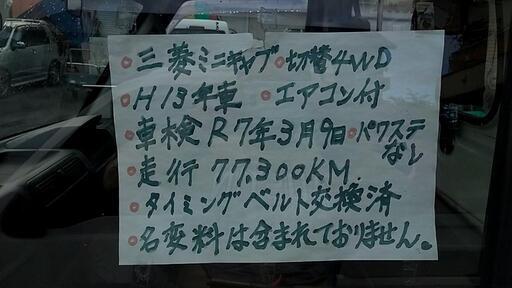 ○三菱ミニキャブ○切替4WD
○H13年車 ○エアコン付
○車検R7年3月9日○パワステなし
○走行 77.300KM
○タイミングベルト交換済
○名変料は含まれておりません。